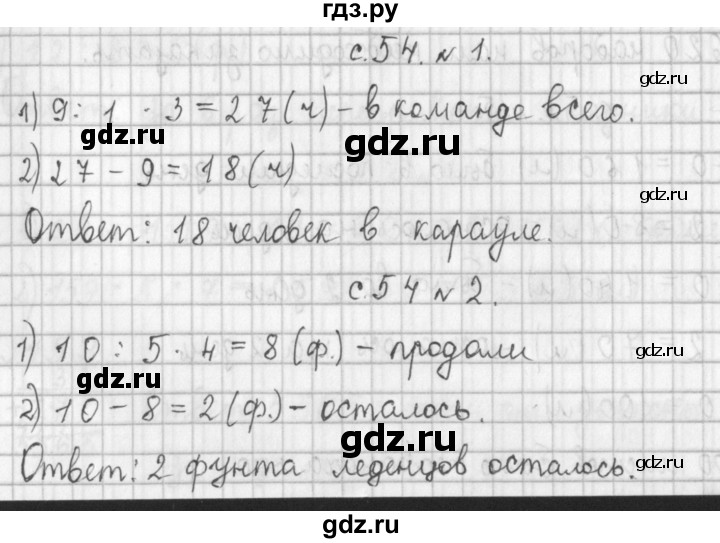 гдз.ру
с.54. № 1.
gdz.ru
1) 9 : 1 · 3 = 27 (ч) – в команде всего.
gdz.ru
gdz.ru
2) 27 – 9 = 18 (ч)
gdz.ru
Ответ: 18 человек в карауле.
с.54 № 2.
gdz.ru
1) 10 : 5 · 4 = 8 (ф.) – продали
gdz.ru
gdz.ru
2) 10 – 8 = 2 (ф.) – осталось.
gdz.ru
Ответ: 2 фунта леденцов осталось.
gdz.ru
gdz.ru